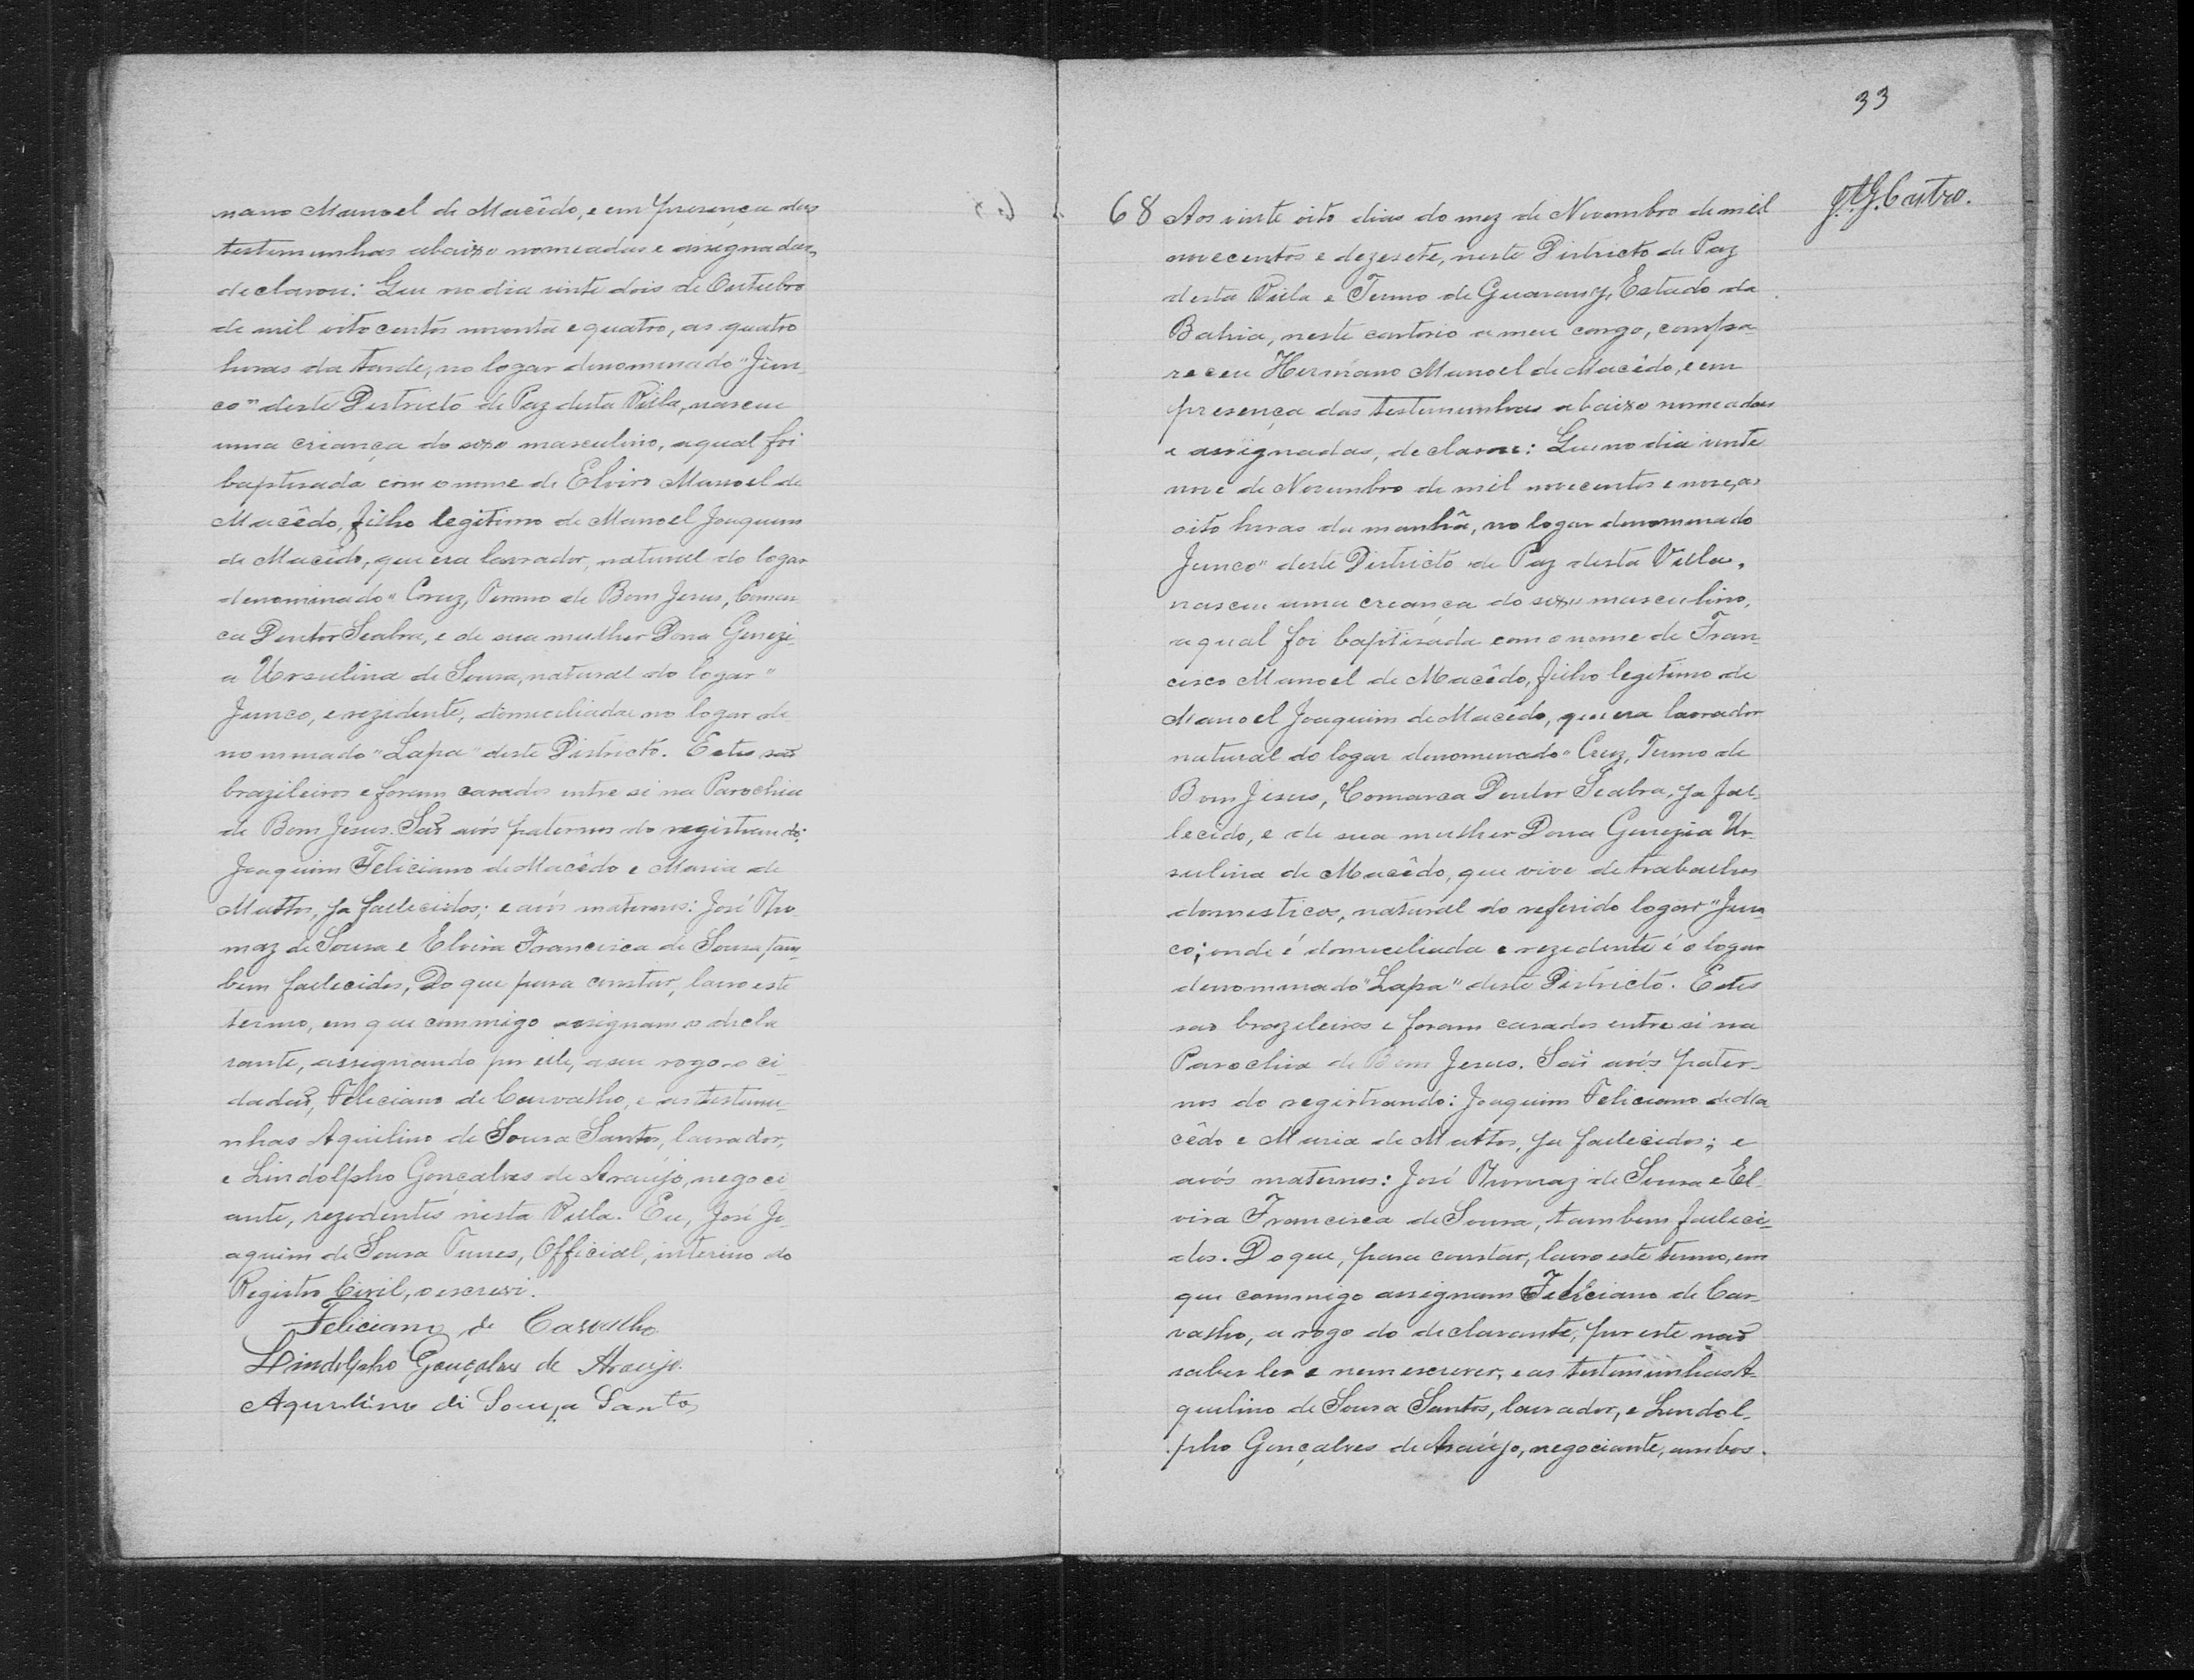 nano Manoel de Macêdo, e em presença das
testemunhas abaixo nomeadas e assignadas,
declarou: Que no dia vinte dois de Outubro
de mil oitocentos noventa e quatro, as quatro
horas da tarde, no logar denominado "Jun-
co" deste Districto de Paz desta Villa, nasceu
uma criança do sexo masculino, a qual foi
baptisada com o nome de Elviro Manoel de
Macêdo, filho legitimo de Manoel Joaquim
de Macêdo, que era lavrador, natural do logar
denominado "Cruz, Termo de Bom Jesus, Comar
ca Doutor Seabra, e de sua mulher Dona Generi-
a Ursulina de Sousa, natural do logar "
Junco, e rezidente, domiciliada no logar de
nominado "Lapa" deste Districto. Estes são
brazileiros e foram casados entre si na Parochia
de Bom Jesus. São avós paternos do registrando:
Joaquim Feliciano de Macêdo e Maria de
Mattos, ja fallecidos; e avós maternos: José Tho
maz de Sousa e Elvira Francisca de Sousa, tam-
bem fallecidos, Do que para constar, lavro este
termo, em que commigo assignam o decla
rante, assignando por elle, a seu rogo o ci-
dadão, Feliciano de Carvalho, e as testemu-
nhas Aquilino de Sousa Santos, lavrador,
e Lindolpho Gonçalves de Araujo, negoci
ante, rezedentes nesta Villa. Eu, José Jo-
aquim de Sousa Tunes, Official, interino do
Registro Civil, o escrevi.
Feliciano de Carvalho
Lindolpho Gonçalves de Araujo.
Aquilino di Souça Santos
33
68 Aos vinte oito dias do mez de Novembro de mil
J. G. Castro.
novecentos e dezesete, neste Districto de Paz
desta Villa e Termo de Guarany, Estado da
Bahia, neste cartorio a meu cargo, compa-
receu Hermano Manoel de Macêdo, e em
presença das testemunhas abaixo nomeadas
e assignadas, declarou: Que no dia vinte
nove de Novembro de mil novecentos e nove, as
oito horas da manhã, no logar denominado
Junco" deste Districto de Paz desta Villa,
nasceu uma creança do sexo masculino,
a qual foi baptisada com o nome de Fran-
cisco Manoel de Macêdo, filho legitimo de
Manoel Joaquim de Macêdo, que era lavrador
natural do logar denominado "Cruz, Termo de
Bom Jesus, Comarca Doutor Seabra, ja fal-
lecido, e de sua mulher Dona Generia Ur-
sulina de Macêdo, que vive de trabalhos
domesticos, natural do referido logar "Jun
co; onde é domiciliada e rezidente é o logar
denominado "Lapa" deste Districto. Estes
são brazileiros e foram casados entre si na
Parochia de Bom Jesus. São avós pater-
nos do registrando: Joaquim Feliciano de Ma
cêdo e Maria de Mattos, ja fallecidos; e
avós maternos: José Thomaz de Sousa e El-
vira Francisca de Sousa, tambem falleci-
dos. Do que, para constar, lavro este termo, em
que commigo assignam Feliciano de Car-
valho, a rogo do declarante, por este não
saber ler e nem escrever, e as testemunhas A-
quilino de Sousa Santos, lavrador, e Lindol-
pho Gonçalves de Araújo, negociante, ambos